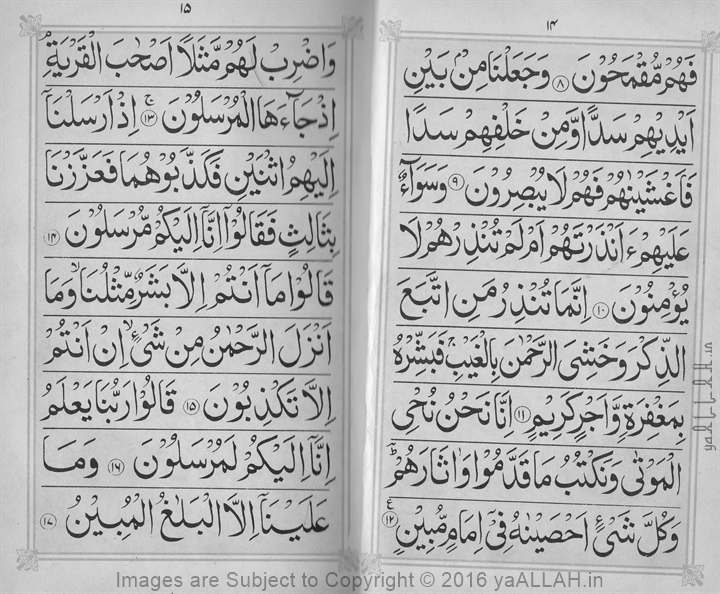 ١٤
فَهُمْ مُّقْمَحُوْنَ ﴿٨﴾ وَجَعَلْنَا مِنْۢ بَيْنِ
اَيْدِيْهِمْ سَدًّا وَّمِنْ خَلْفِهِمْ سَدًّا
فَاَغْشَيْنٰهُمْ فَهُمْ لَا يُبْصِرُوْنَ ﴿٩﴾ وَسَوَآءٌ
عَلَيْهِمْ ءَاَنْذَرْتَهُمْ اَمْ لَمْ تُنْذِرْهُمْ لَا
يُؤْمِنُوْنَ ﴿١٠﴾ اِنَّمَا تُنْذِرُ مَنِ اتَّبَعَ
الذِّكْرَ وَخَشِىَ الرَّحْمٰنَ بِالْغَيْبِ ۚ فَبَشِّرْهُ
بِمَغْفِرَةٍ وَّاَجْرٍ كَرِيْمٍ ﴿١١﴾ اِنَّا نَحْنُ نُحْىِ
الْمَوْتٰى وَنَكْتُبُ مَا قَدَّمُوْا وَاٰثَارَهُمْ ؕ
وَكُلَّ شَىْءٍ اَحْصَيْنٰهُ فِىْ اِمَامٍ مُّبِيْنٍ ﴿١٢﴾ ع
١٥
وَاضْرِبْ لَهُمْ مَّثَلًا اَصْحٰبَ الْقَرْيَةِ ۘ
اِذْ جَآءَهَا الْمُرْسَلُوْنَ ۚ ﴿١٣﴾ اِذْ اَرْسَلْنَآ
اِلَيْهِمُ اثْنَيْنِ فَكَذَّبُوْهُمَا فَعَزَّزْنَا
بِثَالِثٍ فَقَالُوْٓا اِنَّآ اِلَيْكُمْ مُّرْسَلُوْنَ ﴿١٤﴾
قَالُوْا مَآ اَنْتُمْ اِلَّا بَشَرٌ مِّثْلُنَا ۙ وَمَآ
اَنْزَلَ الرَّحْمٰنُ مِنْ شَىْءٍ ۙ اِنْ اَنْتُمْ
اِلَّا تَكْذِبُوْنَ ﴿١٥﴾ قَالُوْا رَبُّنَا يَعْلَمُ
اِنَّآ اِلَيْكُمْ لَمُرْسَلُوْنَ ﴿١٦﴾ وَمَا
عَلَيْنَآ اِلَّا الْبَلٰغُ الْمُبِيْنُ ﴿١٧﴾
yaALLAH.in
Images are Subject to Copyright © 2016 yaALLAH.in